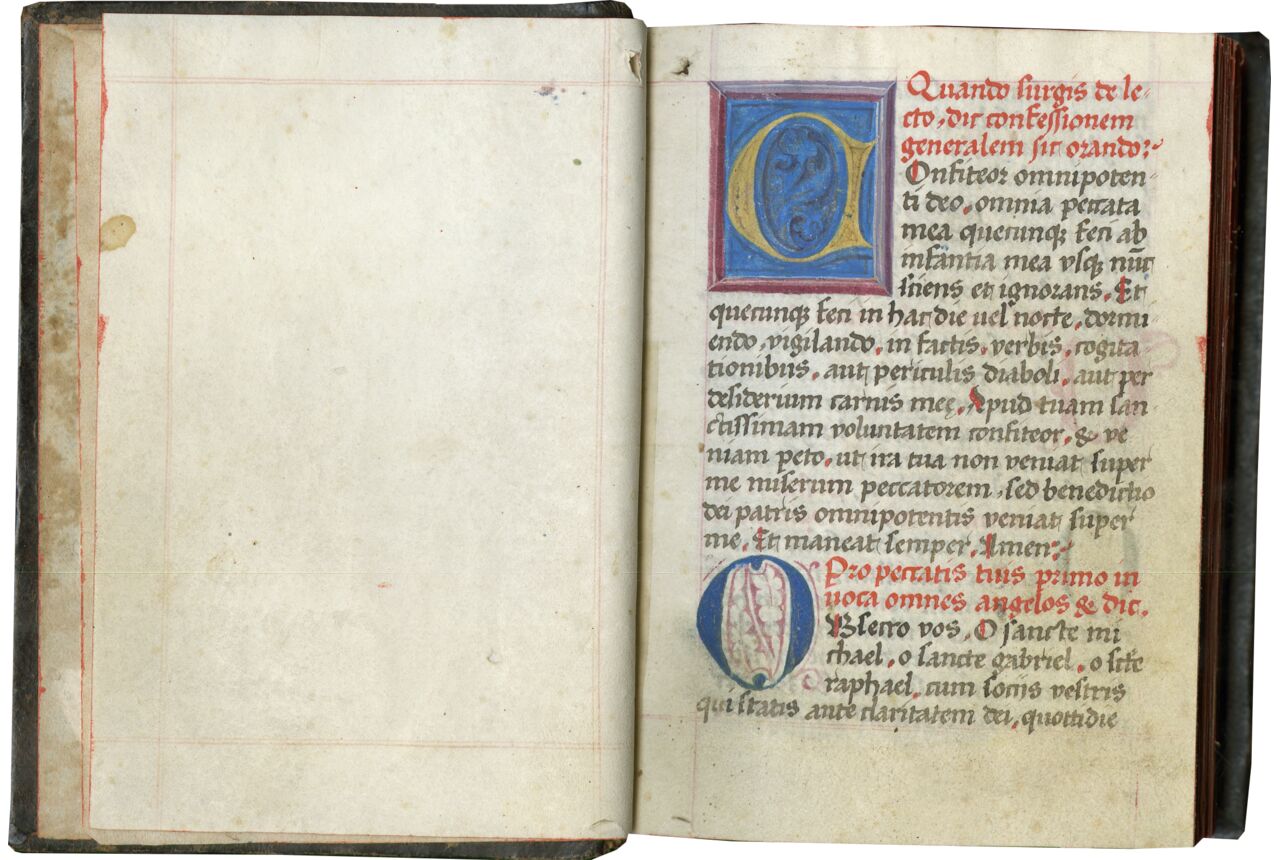 Quando surgis de le-
cto, dic confessionem
generalem sic orando:
COnfiteor omnipoten
ti deo, omnia peccata
mea quecunqȝ feci ab
infantia mea vsqȝ nūc
sciens et ignorans. Et
quecunqȝ feci in hac die uel nocte, dormi
endo, vigilando, in factis, verbis, cogita
tionibus, aut periculis diaboli, aut per
desiderium carnis meę. Apud tuam san
ctissimam voluntatem confiteor, & ve
niam peto, ut ira tua non veniat super
me miserum peccatorem, sed benedictio
dei patris omnipotentis veniat super
me. Et maneat semper. Amen:
Pro peccatis tuis primo in
uoca omnes angelos & dic.
OBsecro vos, O sancte mi
chael, o sancte gabriel, o scte
raphael, cum sociis vestris
qui statis ante claritatem dei, quottidie